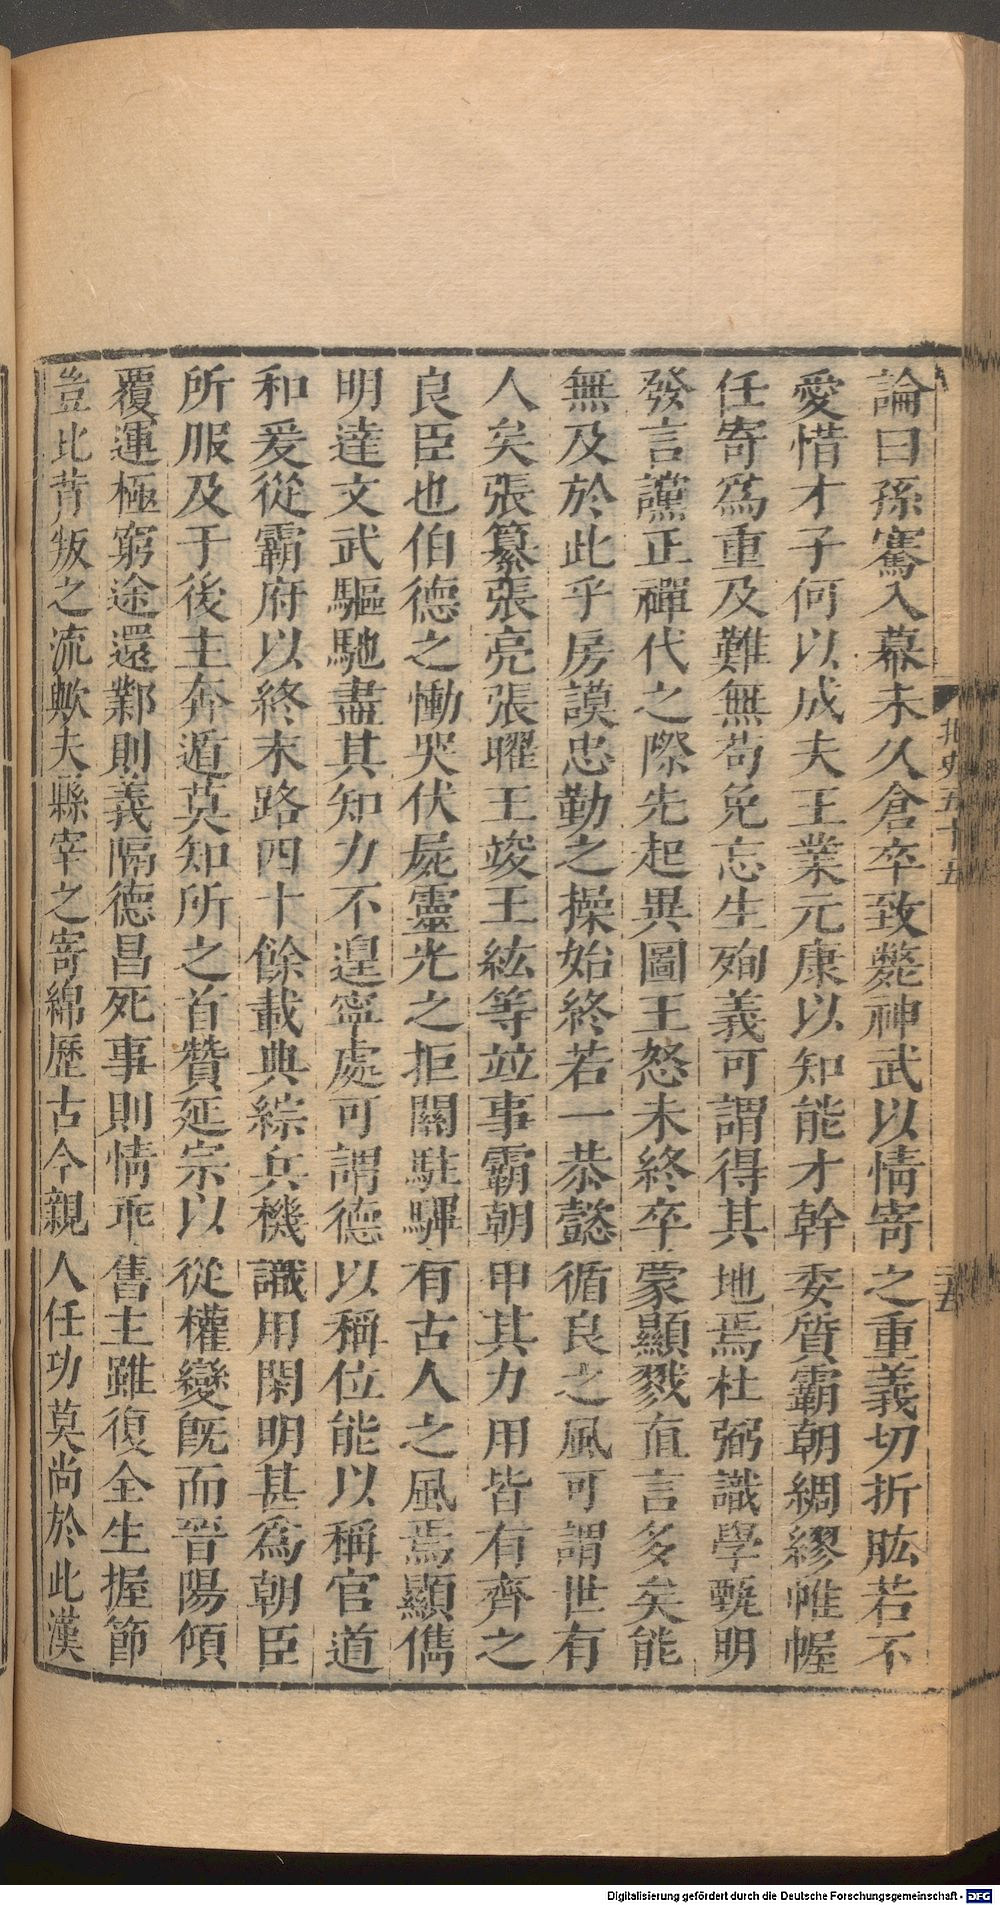 論曰孫騫入幕未久倉卒致斃神武以情寄之重義切折肱若不
愛惜才子何以成夫王業元康以知能才幹委質霸朝綢繆帷幄
任寄爲重及難無苟免忘生殉義可謂得其地焉杜弼識學甄明
發言讜正禪代之際先起異圖王怒未終卒蒙顯戮直言多矣能
無及於此乎房謨忠勤之操始終若一恭懿循良之風可謂世有
人矣張纂張亮張曜王竣王紘等竝事霸朝申其力用皆有齊之
良臣也伯德之慟哭伏屍靈光之拒關駐驆有古人之風焉顯儁
明達文武驅馳盡其知力不遑寧處可謂德以稱位能以稱官道
和爰從霸府以終末路四十餘載典綜兵機識用閑明甚爲朝臣
所服及于後主奔遁莫知所之首贊延宗以從權變旣而晉陽傾
覆運極窮途還鄴則義隔德昌死事則情乖舊主雖復全生握節
豈比背叛之流歟夫縣宰之寄綿歷古今親人任功莫尚於此漢
北史五十五
二五
Digitalisierung gefördert durch die Deutsche Forschungsgemeinschaft - DFG